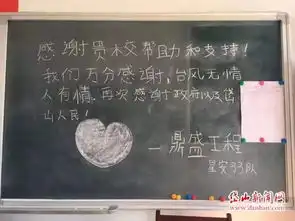 感谢贵校帮助和支持!
我们万分感谢,台风无情
人有情.再次感谢政府以及岱
山人民!
—鼎盛工程
岱山新闻网